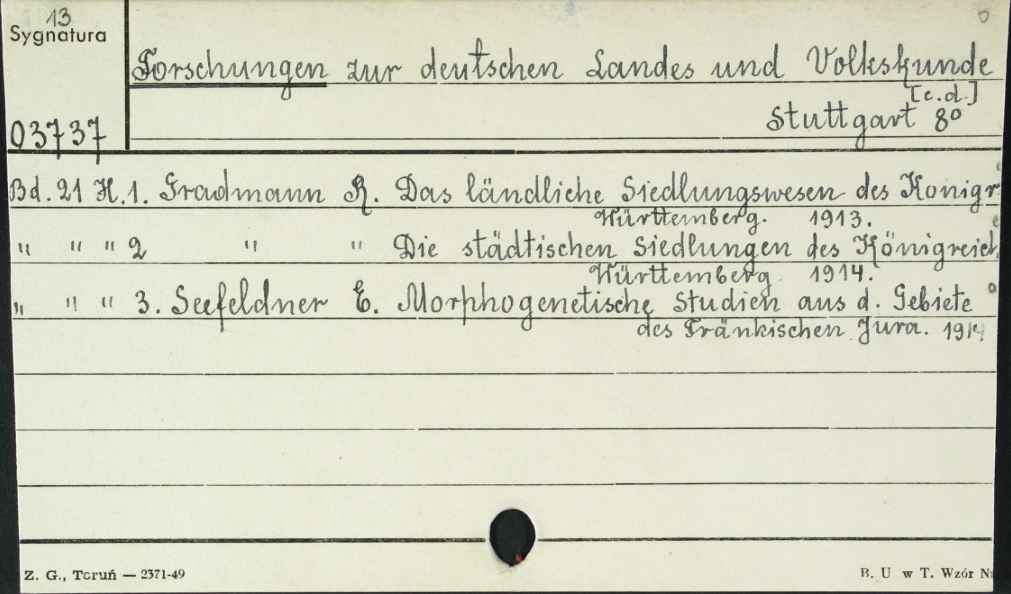 13
Sygnatura
Forschungen zur deutschen Landes und Volkskunde
[c.d.]
03737
Stuttgart 8°
Bd. 21 H. 1. Gradmann R. Das ländliche Siedlungswesen des Königr
Württemberg. 1913.
" " " 2 " " Die städtischen Siedlungen des Königreich
Württemberg. 1914.
" " " 3. Seefeldner E. Morphogenetische Studien aus d. Gebiete
des Fränkischen Jura.
Z. G., Toruń — 2371-49
B. U w T. Wzór